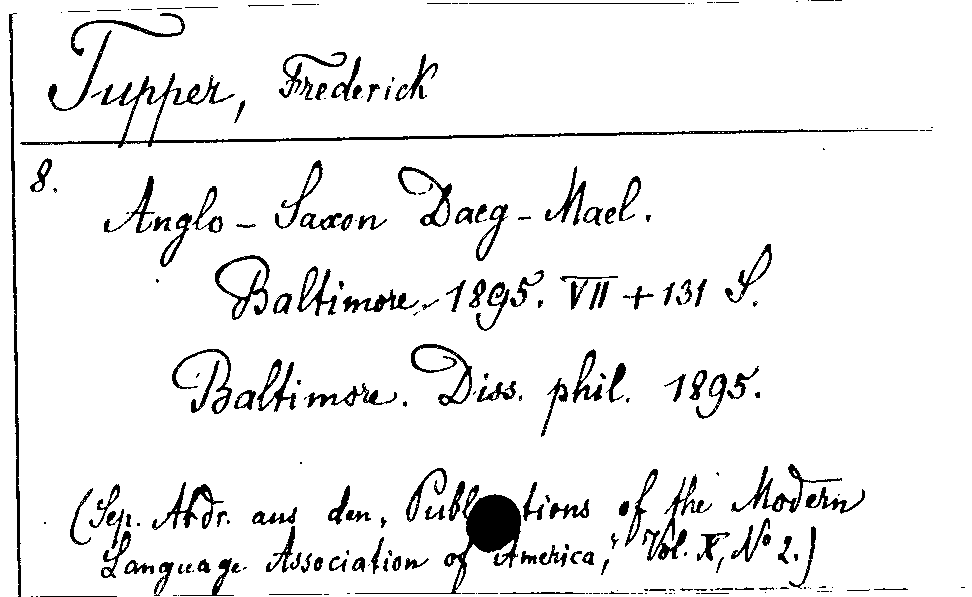 Tupper, Frederick
8.
Anglo-Saxon Daeg-Mael.
Baltimore, 1895. VII + 131 S.
Baltimore. Diss. phil. 1895.
(Sep. Abdr. aus den „Publications of the Modern
Language Association of America,“ Vol. X, No 2.)